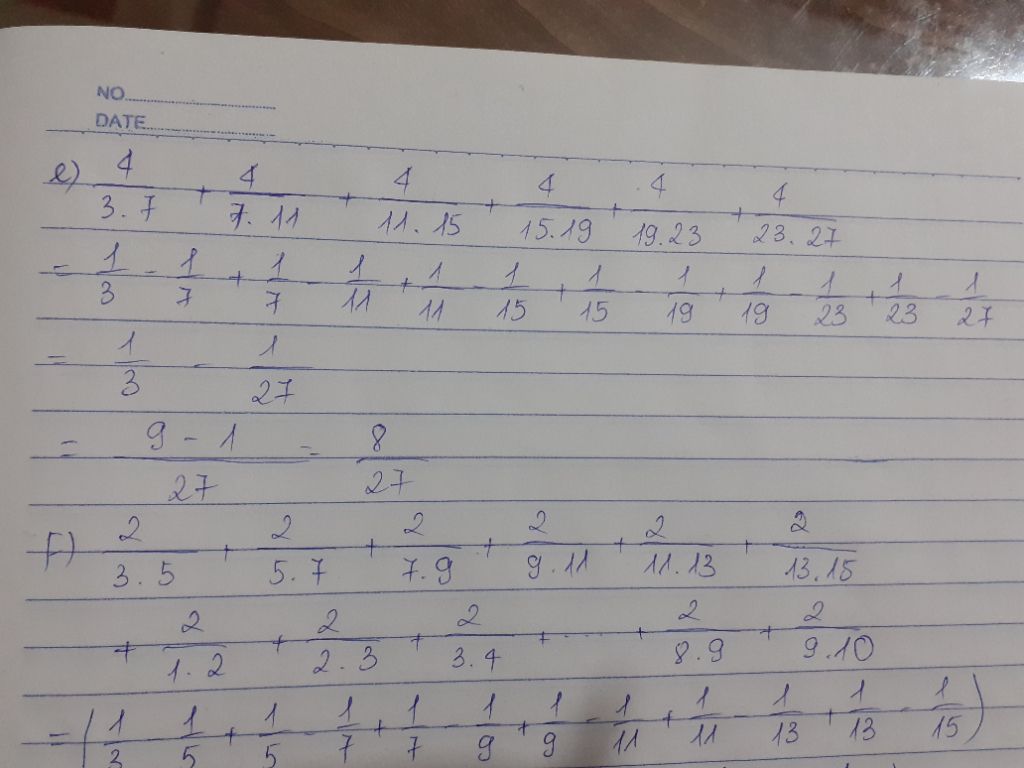 NO
DATE
e) 4/3.7 + 4/7.11 + 4/11.15 + 4/15.19 + 4/19.23 + 4/23.27
= 1/3 - 1/7 + 1/7 - 1/11 + 1/11 - 1/15 + 1/15 - 1/19 + 1/19 - 1/23 + 1/23 - 1/27
= 1/3 - 1/27
= 9 - 1/27 = 8/27
F) 2/3.5 + 2/5.7 + 2/7.9 + 2/9.11 + 2/11.13 + 2/13.15
+ 2/1.2 + 2/2.3 + 2/3.4 + ..... + 2/8.9 + 2/9.10
= (1/3 - 1/5 + 1/5 - 1/7 + 1/7 - 1/9 + 1/9 - 1/11 + 1/11 - 1/13 + 1/13 - 1/15)